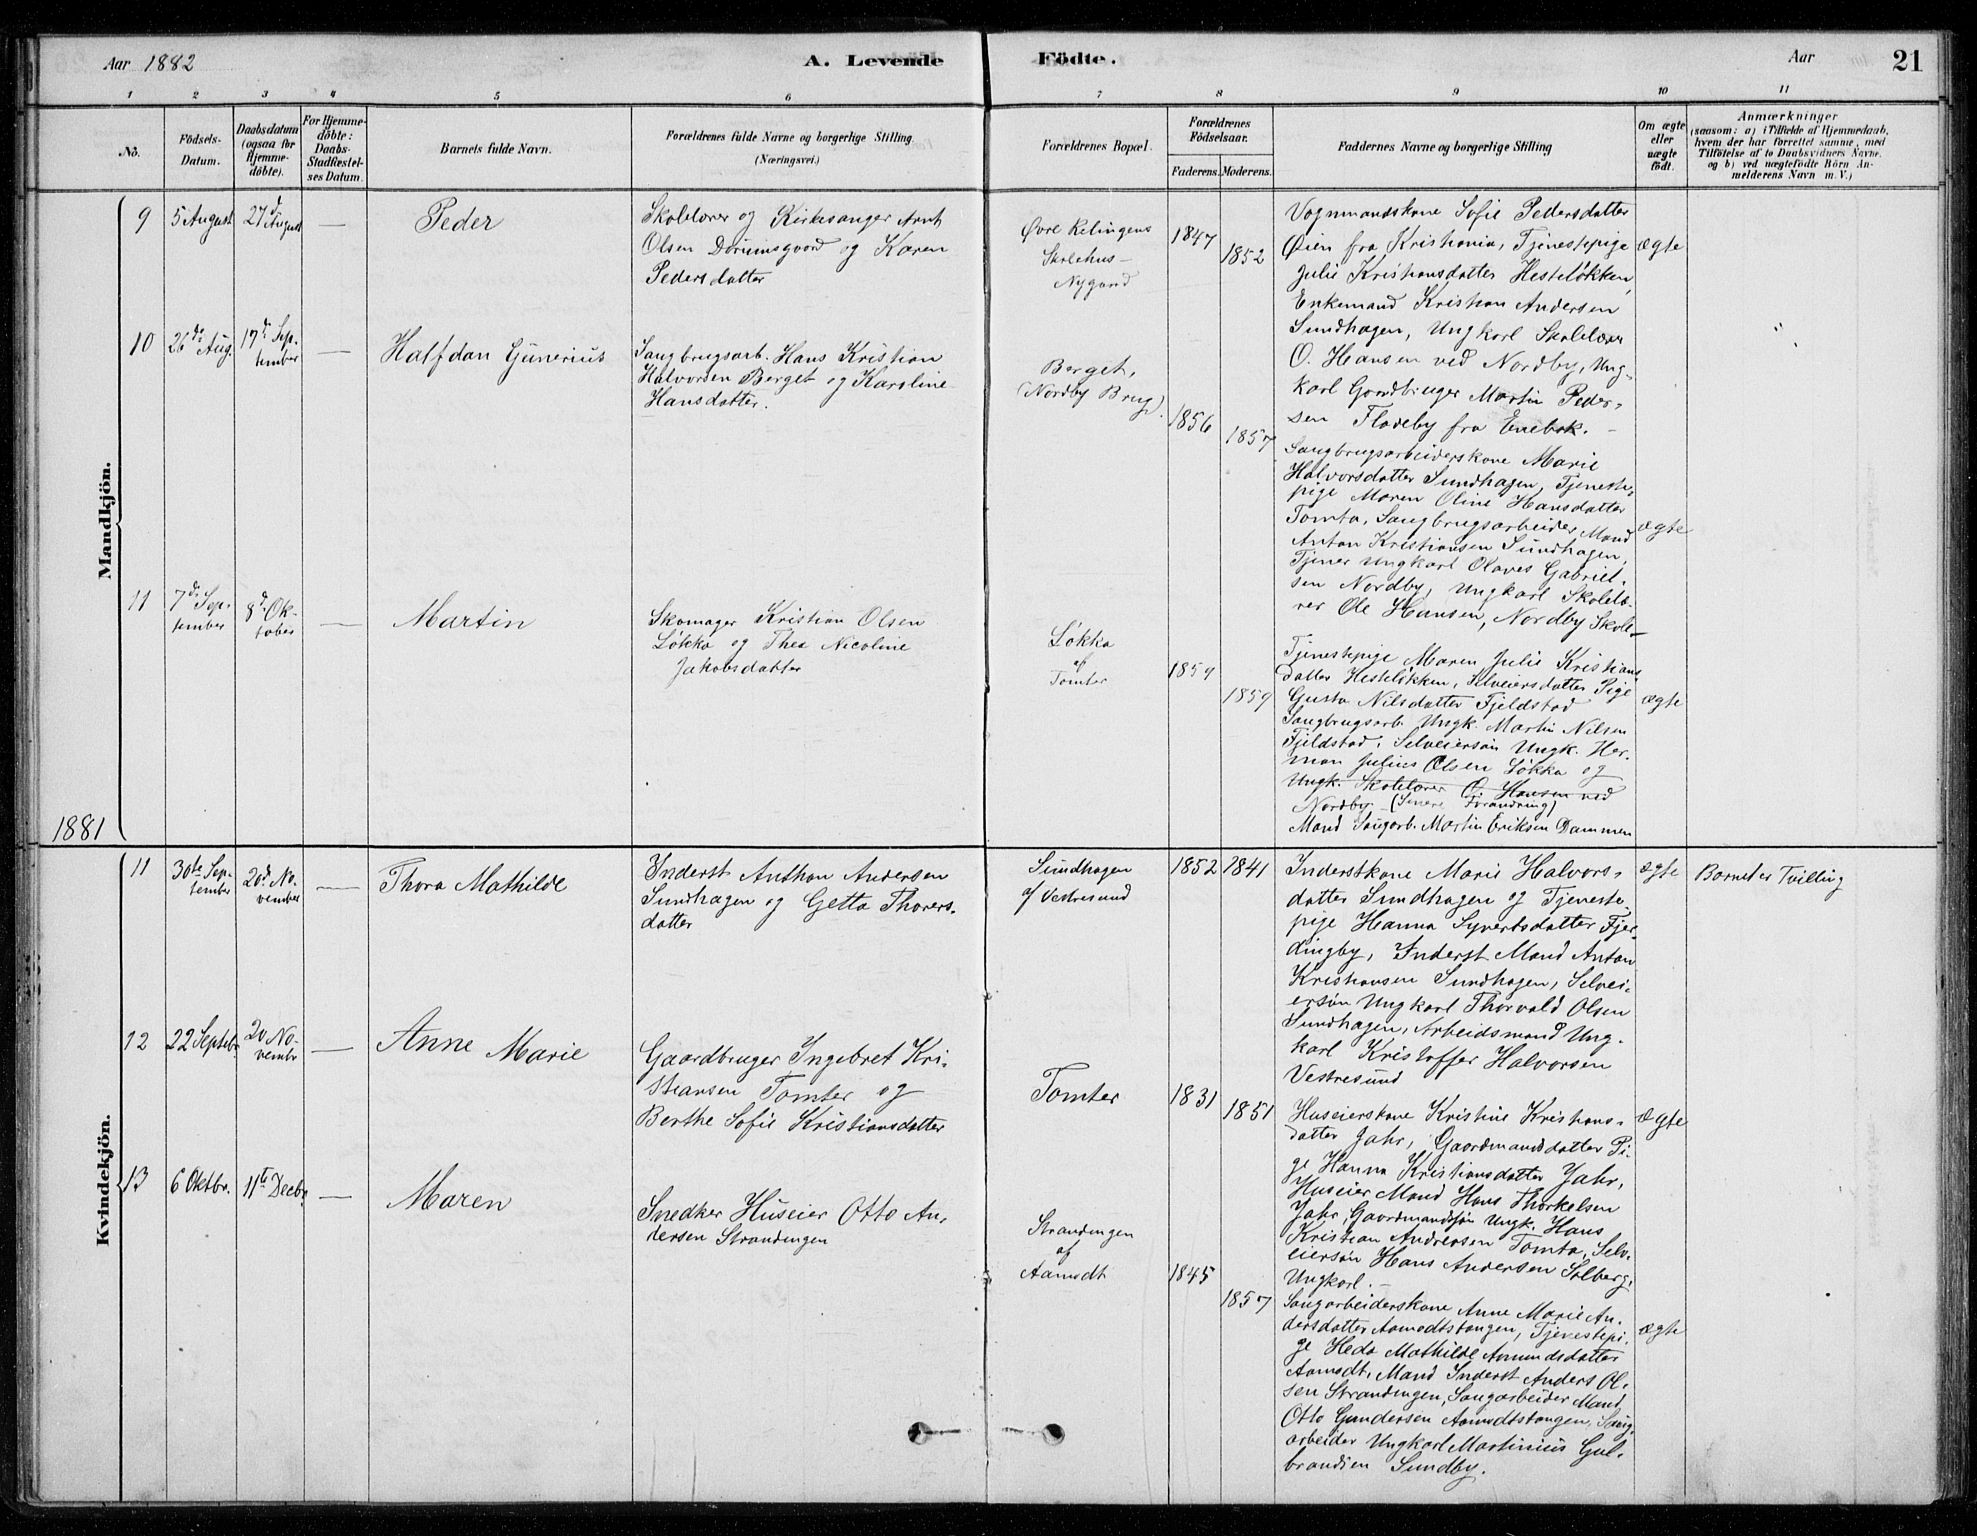 Aar 1882
A. Levende Födte.
Aar
21
1 2 3 4 5 6 7 8 9 10 11
No.
Födsels-
Datum.
Daabsdatum
(ogsaa for
Hjemme-
döbte).
For Hjemme-
döbte:
Daabs-
Stadfæstel-
ses Datum.
Barnets fulde Navn.
Forældrenes fulde Navne og borgerlige Stilling.
(Næringsvei.)
Forældrenes Bopæl.
Forældrenes
Födselsaar.
Faderens. Moderens.
Faddernes Navne og borgerlige Stilling
Om ægte
eller
uægte
födt.
Anmærkninger
(saasom: a) i Tilfælde af Hjemmedaab,
hvem der har forrettet samme, med
Tilföielse af to Daabsvidners Navne,
og b) ved uægtefödte Börn An-
melderens Navn m. V.)
Mandkjön.
9
5 August
27d August
—
Peder
Skolelærer og Kirkesanger Arnt
Olsen Dørumsgaard og Karen
Pedersdatter
Øvre Relingens
Skolehus—
Nygaard
1847
1852
Vognmandskone Sofie Pedersdatter
Øien fra Kristiania, Tjenestepige
Julie Kristiansdatter Hesteløkken,
Enkemand Kristian Andersen
Sundhagen, Ungkarl Skolelærer
O. Hansen ved Nordby, Ung-
karl Gaardbruger Martin Peder-
sen Fladeby fra Enebak. —
ægte
10
26de Aug.
17d Sep-
tember
—
Halfdan Gunerius
Saugbrugsarb. Hans Kristian
Halvorsen Berget og Karoline
Hansdatter.
Berget,
(Nordby Brug).
1856
1857
Saugbrugsarbeiderskone Marie
Halvorsdatter Sundhagen, Tjeneste-
pige Maren Oline Hansdatter
Tomta, Saugbrugsarbeider, Mand
Anton Kristiansen Sundhagen,
Tjener Ungkarl Olaves Gabriel-
sen Nordby, Ungkarl Skolelæ-
rer Ole Hansen, Nordby Skole—
ægte
11
7d Sep-
tember
8d Ok-
tober
—
Martin
Skomager Kristian Olsen
Løkka og Thea Nicoline
Jakobsdatter
Løkka
af
Tomter
1859
1859
Tjenestepige Maren Julie Kristians
datter Hesteløkken, Selveiersdatter Pige
Gusta Nilsdatter Fjeldstad
Saugbrugsarb. Ungk. Martin Nilsen
Fjeldstad, Selveiersøn Ungk. Her-
man Julius Olsen Løkka og
Ungk. Skolelærer O. Hansen ved
Nordby. — (Senere Forandring)
Mand Saugarb. Martin Eriksen Dammen
ægte
1881
Kvindekjön.
11
30te Sep-
tember
20d No-
vember
—
Thora Mathilde
Inderst Anthon Andersen
Sundhagen og Getta Thorers-
datter
Sundhagen
af Vestresund
1852
1841
Inderstkone Marie Halvors-
datter Sundhagen og Tjeneste-
pige Hanna Syvertsdatter Fjer-
dingby, Inderst Mand Anton
Kristiansen Sundhagen, Selvei-
ersøn Ungkarl Thorvald Olsen
Sundhagen, Arbeidsmand Ung-
karl Kristoffer Halvorsen
Vestresund
ægte
Barnet er Tvilling
12
22 Septebr
20 No-
vembr
—
Anne Marie
Gaardbruger Ingebret Kri-
stiansen Tomter og
Berthe Sofie Kristiansdatter
Tomter
1831
1851
Huseierskone Kristine Kristians-
datter Jahr, Gaardmandsdatter Pi-
ge Hanna Kristiansdatter Jahr,
Huseier Mand Hans Thorkelsen
Jahr, Gaardmandssøn Ungk. Hans
Kristian Andreasen Tomta, Selv-
eiersøn Hans Andersen Solberg,
Ungkarl. —
ægte
13
6 Oktbr.
11te Decbr
—
Maren
Snedker Huseier Otto An-
dersen Strandingen
Strandingen
af
Aamodt
1845
1857
Saugarbeiderskone Anne Marie An-
dersdatter Aamodtstangen, Tjenestepi-
ge Heda Mathilde Amundsdatter
Aamodt, Mand Inderst Anders Ol-
sen Strandingen, Saugarbeider Mand
Otto Gundersen Aamodtstangen, Saug-
arbeider Ungkarl Martinius Gul-
brandsen Sundby.
ægte